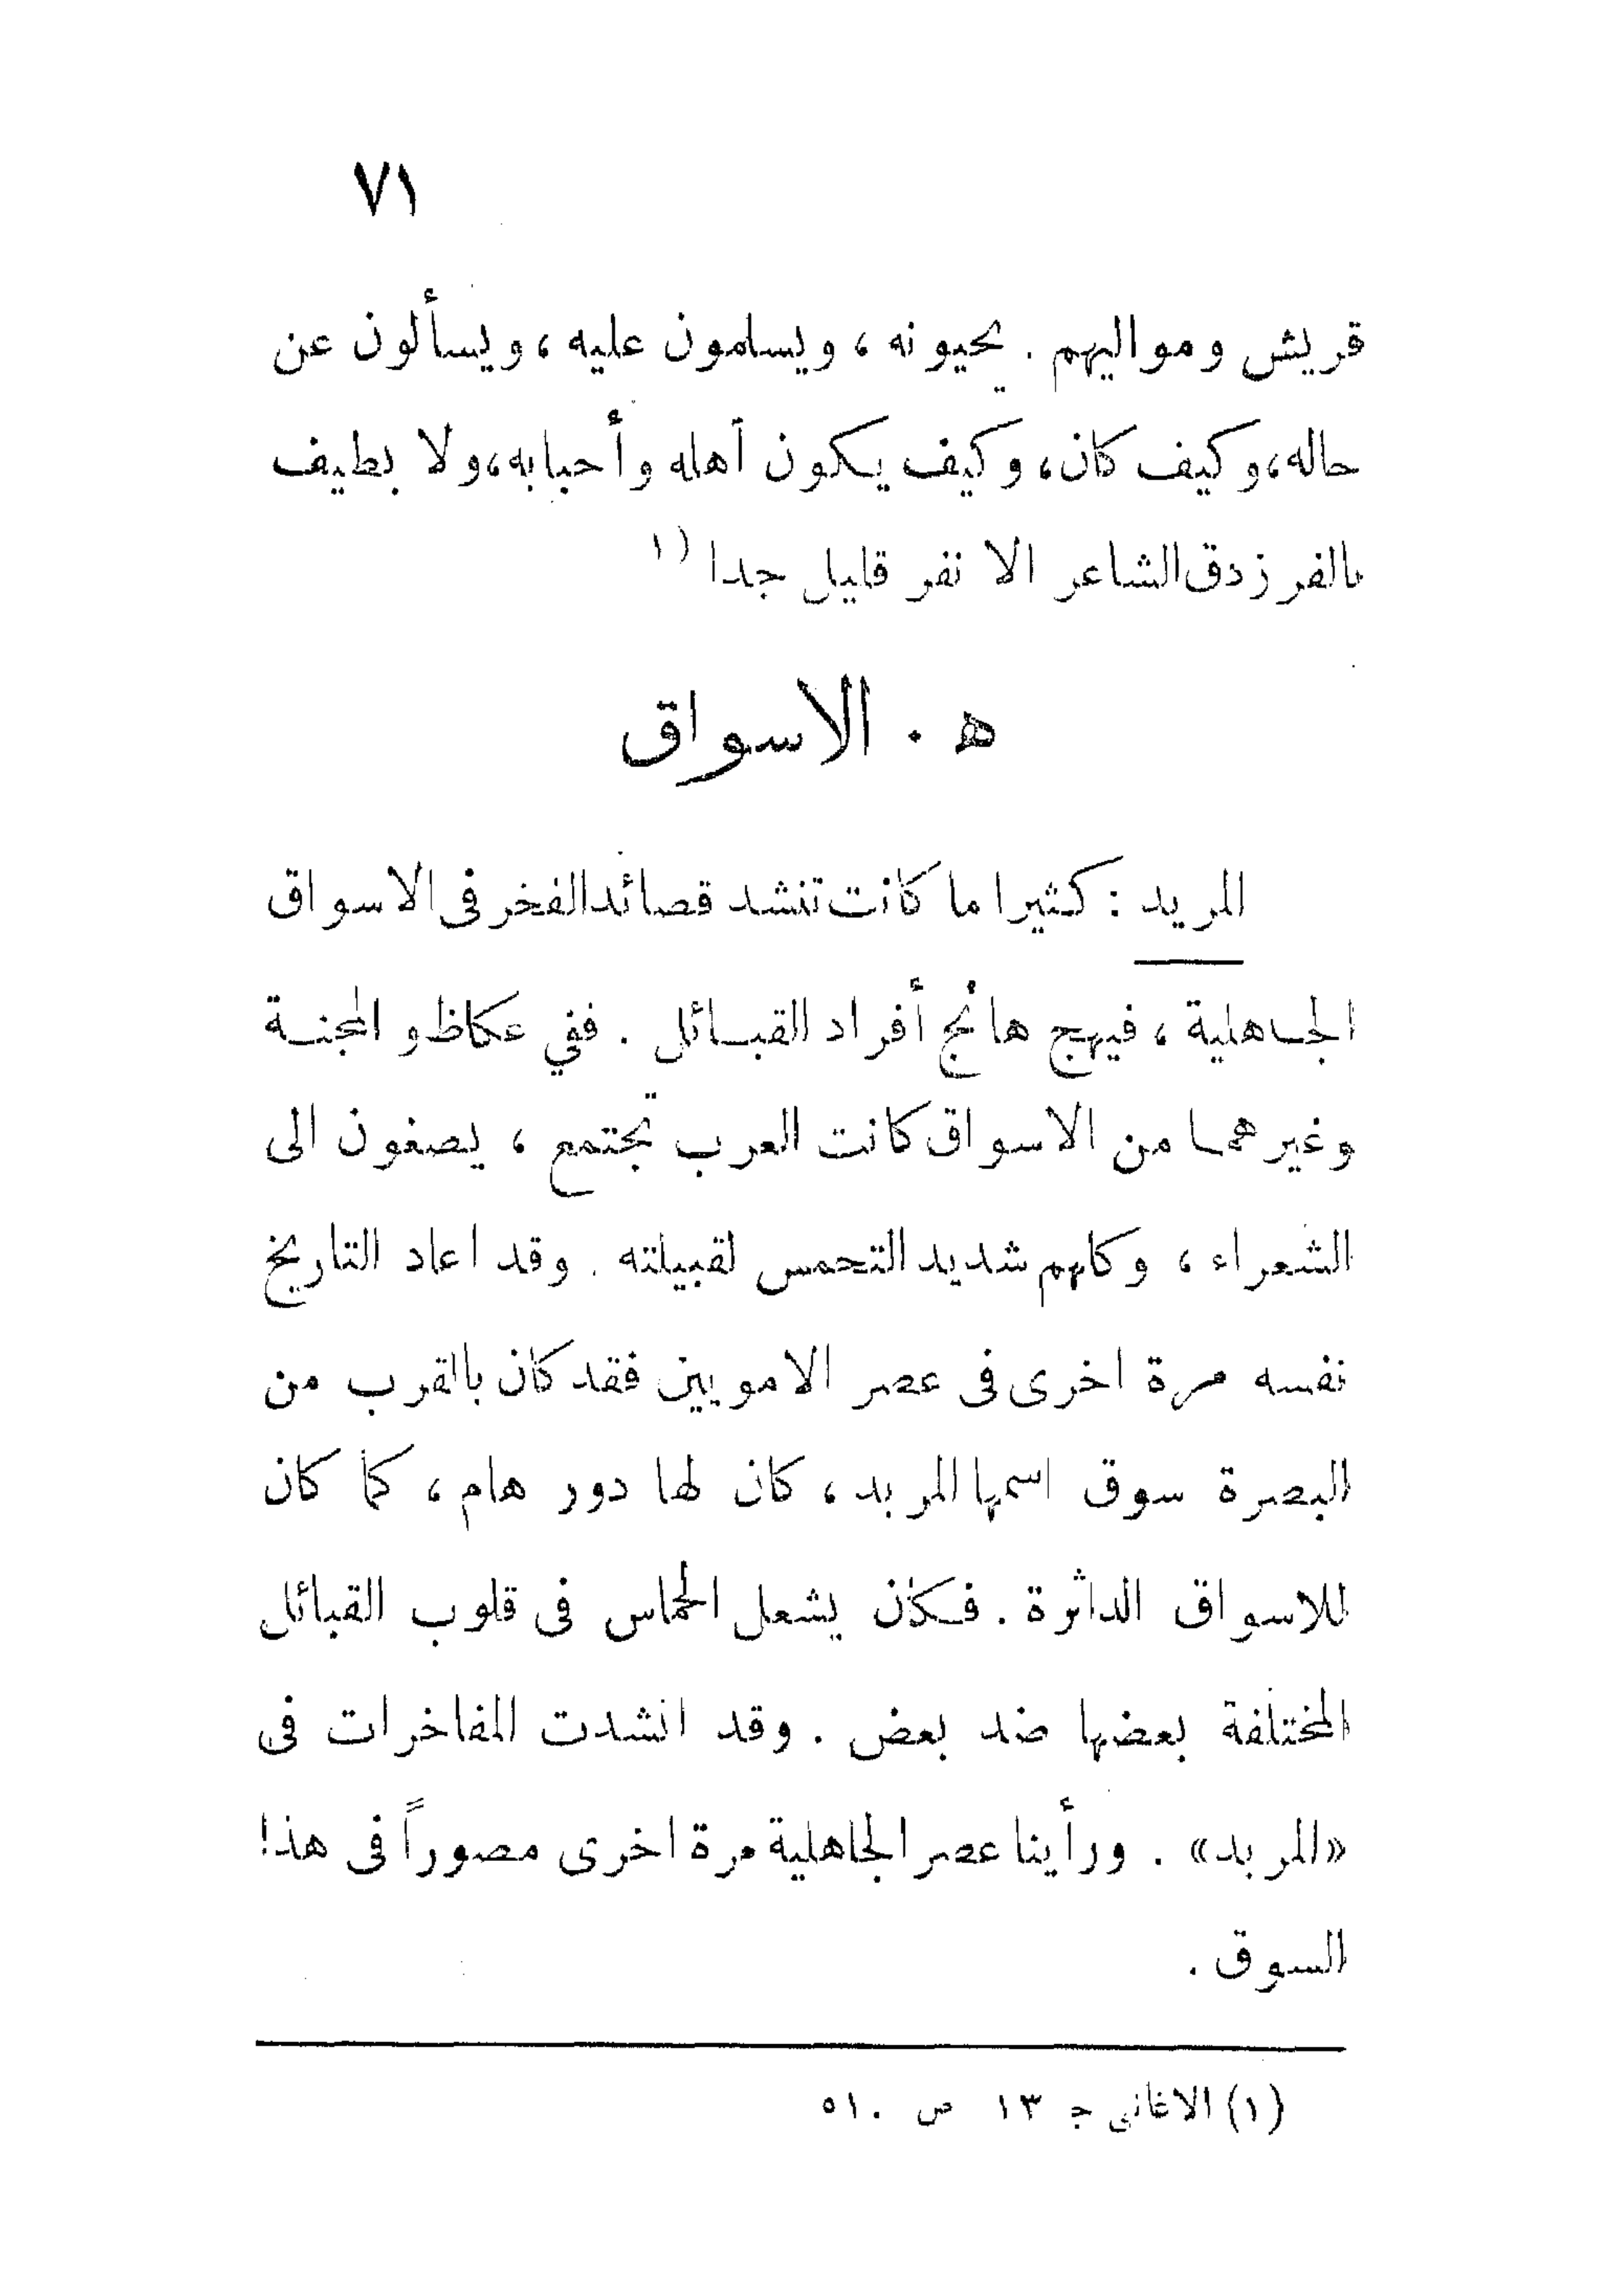 ٧١
قريش ومواليهم . يحيونه ، ويسلمون عليه ، ويسألون عن
حاله، وكيف كان، وكيف يكون أهله وأحبابه، ولا بطيف
بالفرزدق الشاعر الا نفر قليل جدا (١
ه . الاسواق
المريد : كثيرا ما كانت تنشد قصائد الفخر فى الاسواق
الجاهلية ، فيهج هائج أفراد القبائل . ففي عكاظ و المجنة
وغيرهما من الاسواق كانت العرب تجتمع ، يصغون الى
الشعراء ، وكلهم شديد التحمس لقبيلته . وقد اعاد التاريخ
نفسه مرة اخرى فى عصر الامويين فقد كان بالقرب من
البصرة سوق اسمها المربد ، كان لها دور هام ، كما كان
للاسواق الداثرة . فكان يشعل الحماس فى قلوب القبائل
المختلفة بعضها ضد بعض . وقد انشدت المفاخرات فى
«المربد» . ورأينا عصر الجاهلية مرة اخرى مصوراً فى هذا
السوق .
(١) الاغانى ج ١٣ ص ٥١٠